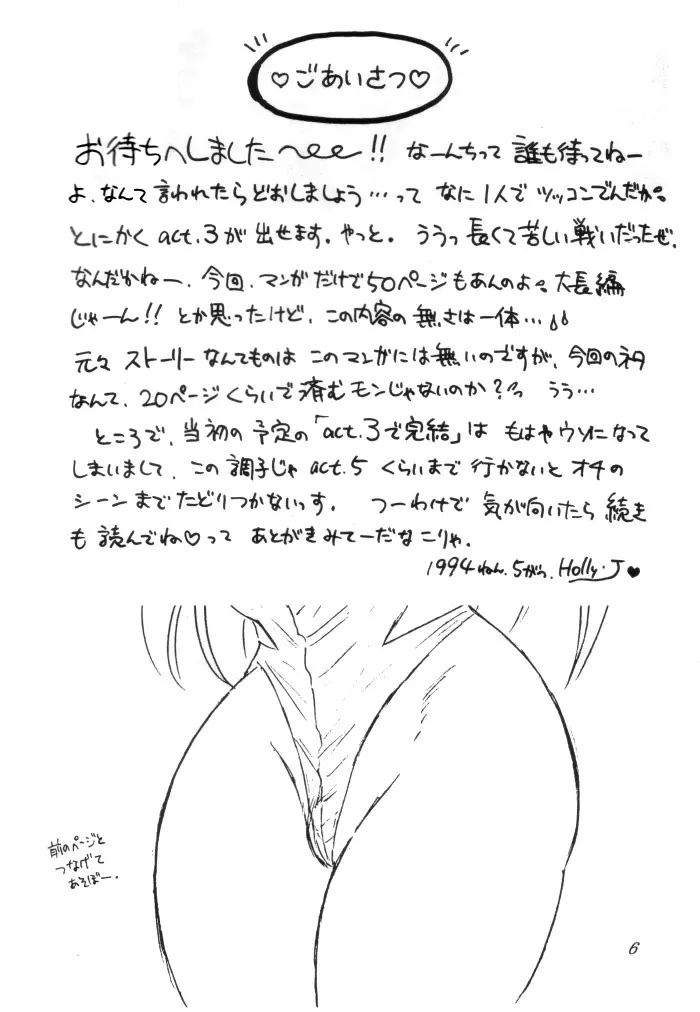 ♡ごあいさつ♡
お待ちへしました〜!! なーんちって 誰も待ってねー
よ、なんて 言われたら どおしましょう…って なに1人で ツッコンでんだか。
とにかく act.3が 出せます。やっと。ううっ 長くて苦しい戦いだったぜ。
なんだかねー、今回、マンガだけで50ページもあんのよ。大長編
じゃーん!! とか思ったけど、この内容の 無さは一体…
元々 ストーリーなんてものは このマンガには無いのですが、今回のネタ
なんて、20ページくらいで済むモンじゃないのか?っ うう…
ところで、当初の 予定の「act.3で完結」は もはやウソになって
しまいまして、この 調子じゃ act.5 くらいまで 行かないと オチの
シーンまで たどりつかないっす。 つーわけで 気が向いたら 続き
も 読んでね♡って あとがきみてーだな こりゃ.
1994ねん.5がつ. Holly・J♥
前のページと
つなげて
あそぼー.
6